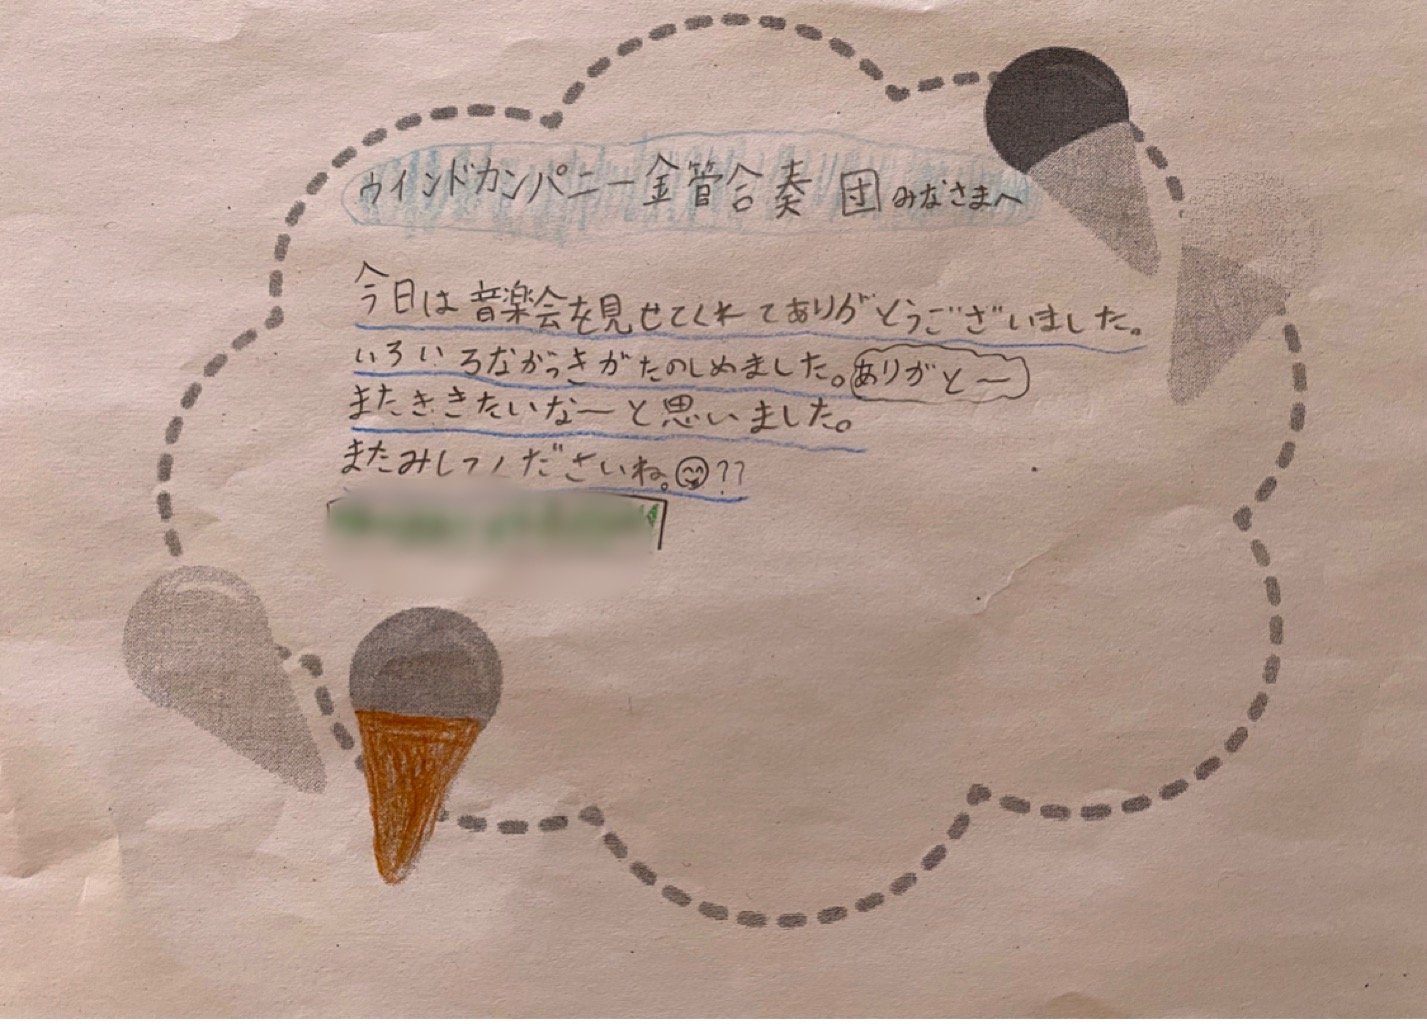 ウインドカンパニー金管合奏団みなさまへ
今日は音楽会を見せてくれてありがとうございました。
いろいろながっきがたのしめました。ありがと〜
またききたいなーと思いました。
またみしてくださいね。😊??